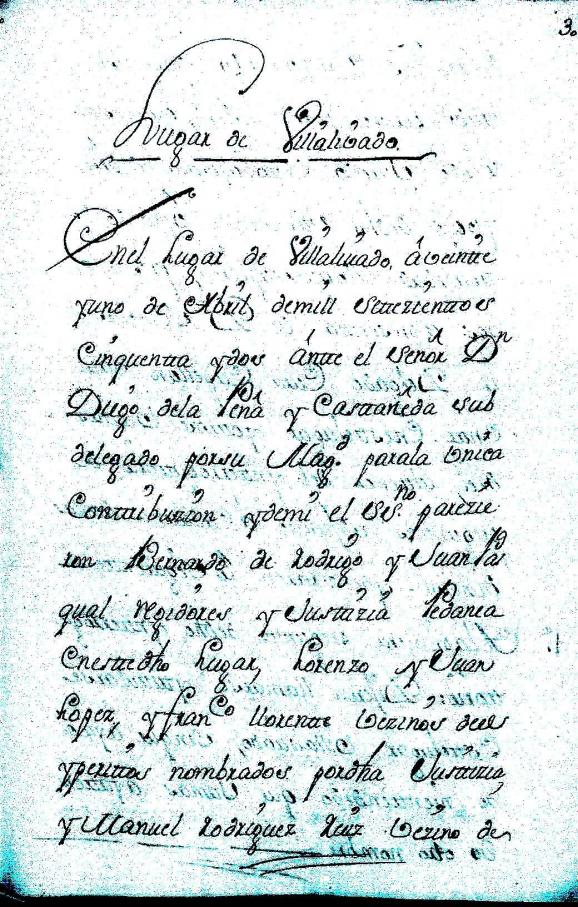 3.
Lugar de Villalvado.
Enel Lugar de Villalvado, áveinte
yuno de Abril, demill setezientos
Cinquenta ydos ánte el señor Dn
Diego dela Peña y Castañeda sub
delegado porsu Magd. parala Vnica
Contribuzion ydemi el ess.no parezie
ron Bernardo de Rodrigo y Juan Pas
qual regidores y Justizia Pedanea
Enestedho Lugar, Lorenzo y Juan
Lopez, yfranco llorente Vezinos del
yperitos nombrados pordha Justizia
y Manuel Rodriguez Ruiz Vezino de